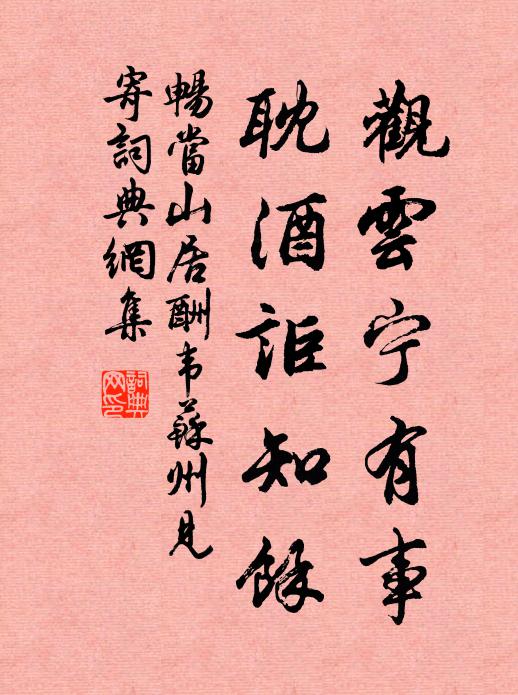 觀雲宁有事
耽酒詎知餘
暢當山居酬韦蘇州見
寄詞典網集
詞典网印